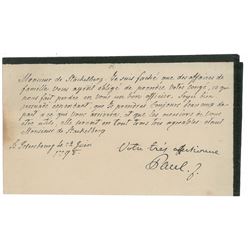 Monsieur de Stackelberg. Je suis fâché que des affaires de
famille vous ayent obligé de prendre votre congé, ce qui
nous fait perdre en vous un bon officier. Soyez bien
persuadé cependant, que je prendrai toujours beaucoup de
part à ce que vous arrivera, et que les occasions de vous
être utile, me seront en tout tems très agréables, étant
Monsieur de Stackelberg
St. Petersbourg ce 2 Juin
179
Votre très affectionné
Paul